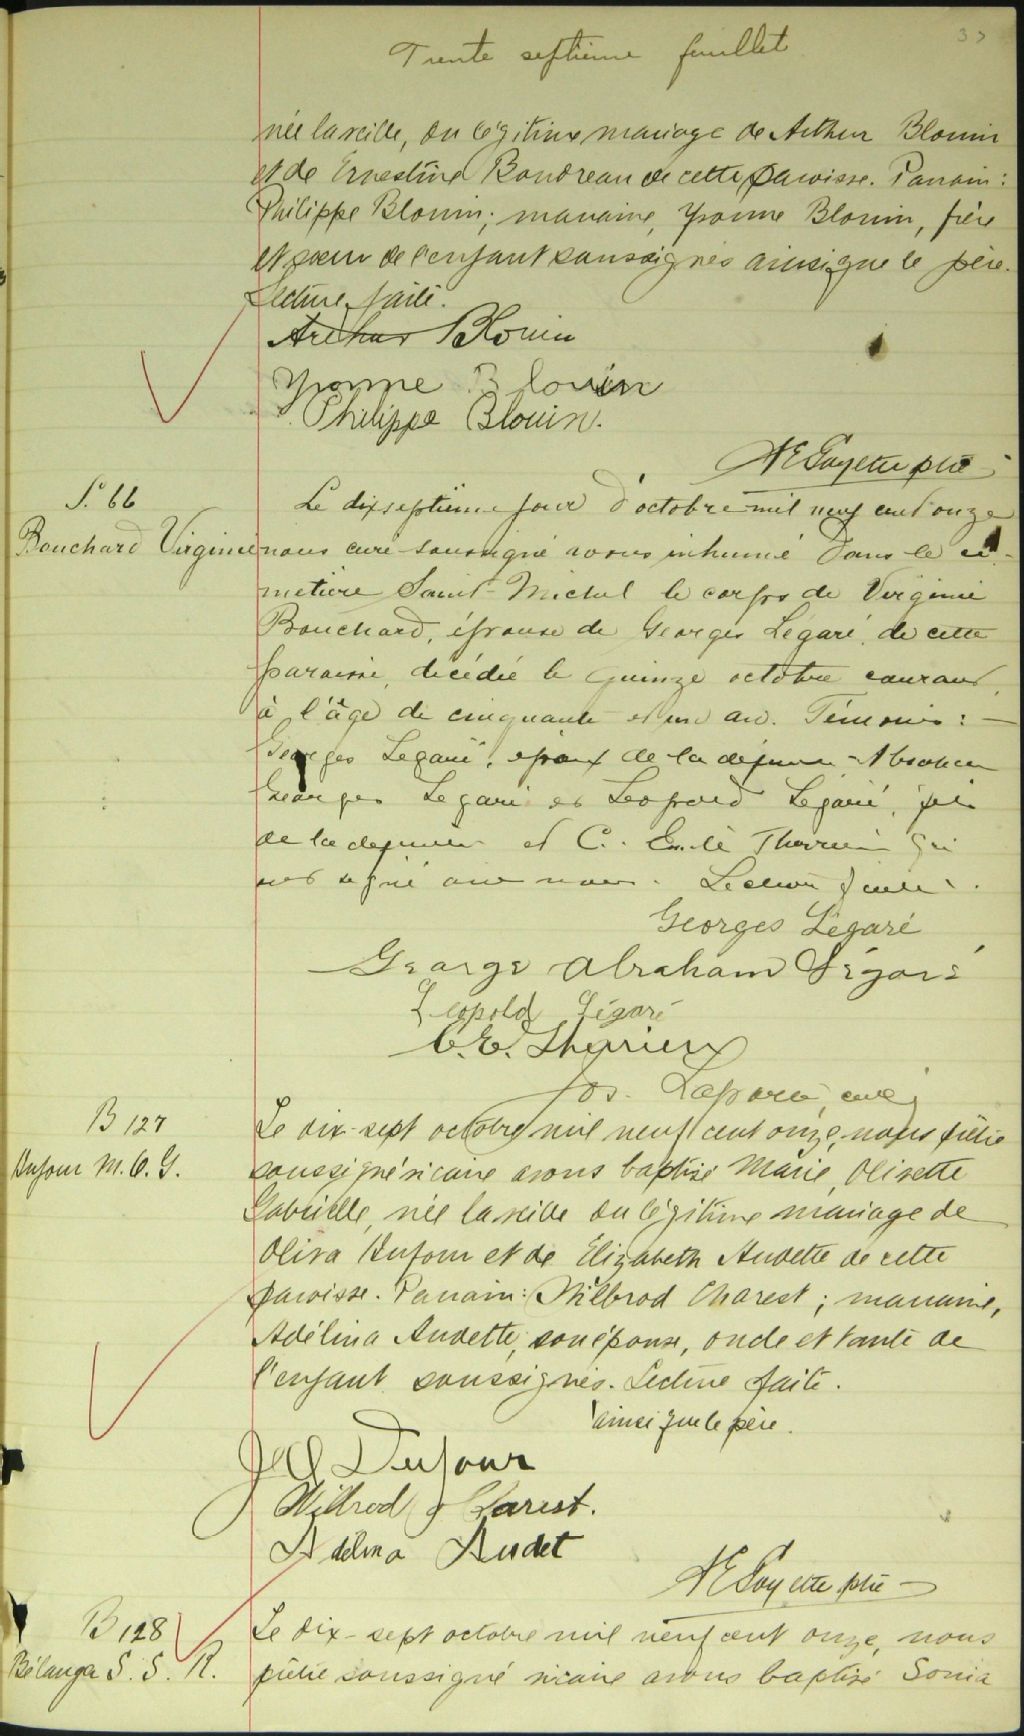 37
Trente septième feuillet
née la veille, du légitime mariage de Arthur Blouin
et de Ernestine Boudreau de cette paroisse. Parrain:
Philippe Blouin; marraine, Yvonne Blouin, frère
et sœur de l'enfant soussignés ainsi que le père.
Lecture faite.
Arthur Blouin
Yvonne Blouin
Philippe Blouin.
Payette ptre
S. 66
Bouchard Virginie
Le dixseptième jour d'octobre mil neuf cent onze
nous curé soussigné avons inhumé dans le ci-
metière Saint-Michel le corps de Virginie
Bouchard, épouse de Georges Légaré, de cette
paroisse, décédée le quinze octobre courant,
à l'âge de cinquante et un an. Témoins: -
Georges Legaré, époux de la défunte, Abraham
Georges Legaré et Leopold Legaré, fils
de la défunte et C. Emile Therrien qui
ont signé avec nous. Lecture faite.
Georges Légaré
George Abraham Légaré
Leopold Légaré
C. E. Therrien
Jos. Laporte, curé
B 127
Dufour M. O. G.
Le dix-sept octobre mil neuf cent onze, nous prêtre
soussigné vicaire avons baptisé Marie, Olivette
Gabrielle, née la veille du légitime mariage de
Oliva Dufour et de Elizabeth Audette de cette
paroisse. Parrain: Wilbrod Charest; marraine,
Adélina Audette, son épouse, oncle et tante de
l'enfant soussignés. Lecture faite.
ainsi que le père.
J O Dufour
Wilbrod Charest.
Adelina Audet
Payette ptre
B 128
Bélanger S. S. R.
Le dix-sept octobre mil neuf cent onze, nous
prêtre soussigné vicaire avons baptisé Sonia